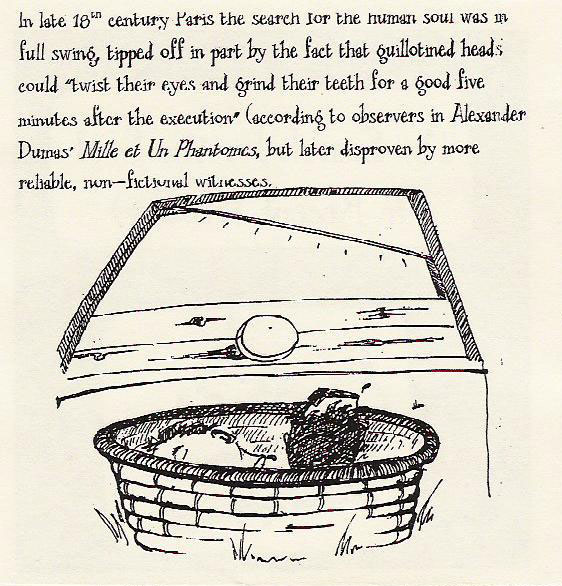 In late 18th century Paris the search for the human soul was in
full swing, tipped off in part by the fact that guillotined heads
could "twist their eyes and grind their teeth for a good five
minutes after the execution" (according to observers in Alexander
Dumas' Mille et Un Phantomes, but later disproven by more
reliable, non-fictional witnesses.